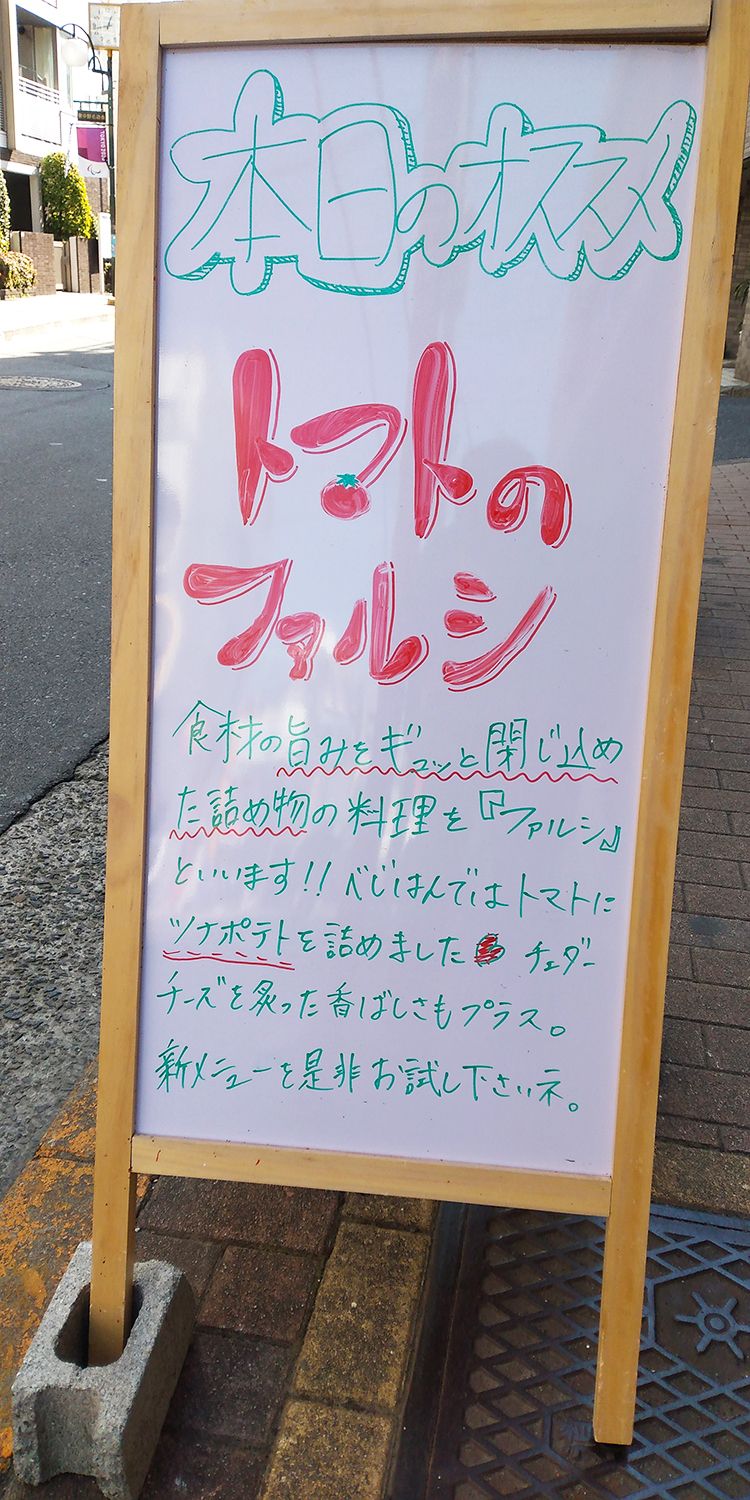 本日のオススメ
トマトの
ファルシ
食材の旨みをギュッと閉じ込め
た詰め物の料理を『ファルシ』
といいます!!べじはんではトマトに
ツナポテトを詰めました チェダー
チーズを炙った香ばしさもプラス。
新メニューを是非お試し下さいネ。